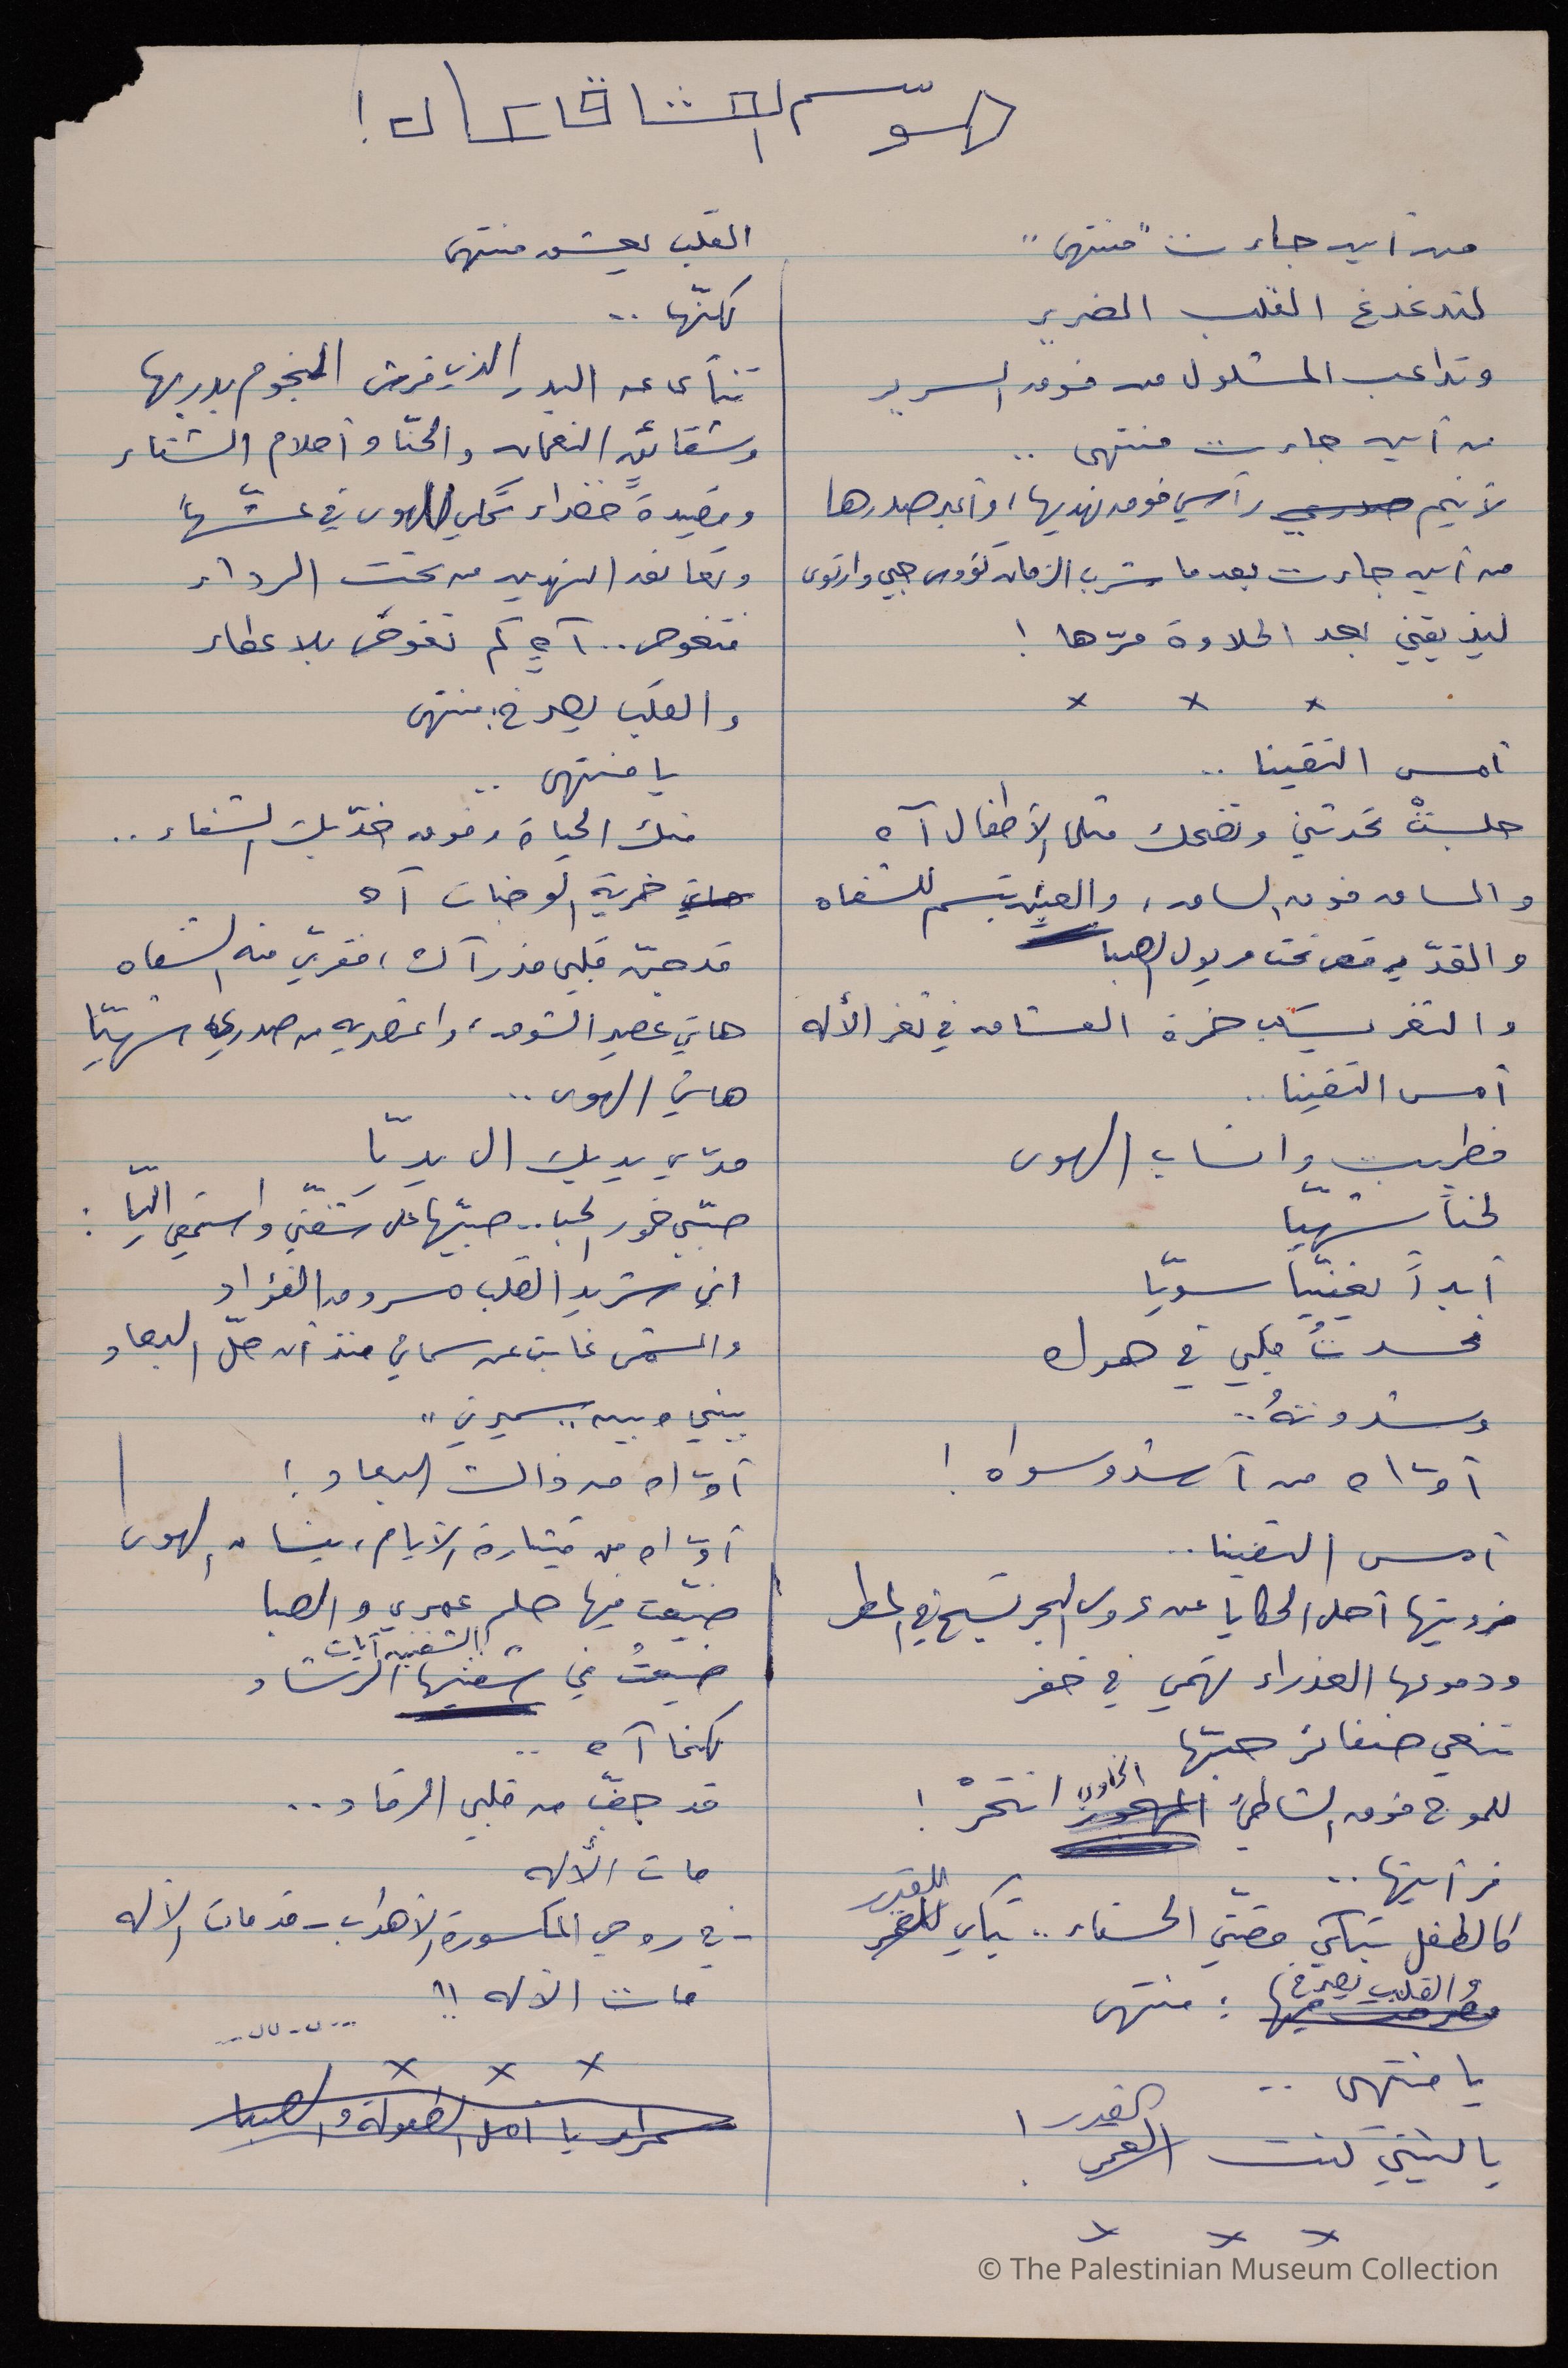 من أين جاءت "منتهى"
لتدغدغ القلب الضرير
وتداعب المشلول من فوق السرير
من أين جاءت منتهى ..
لأنيم صدري رأسي فوق نهديها، وأعبد صدرها
من أين جاءت بعدما شرب الزمان كؤوس حبي وارتوى
ليذيقني بعد الحلاوة مرّها !
x x x
أمس التقينا ..
جلستْ تحدثني وتضحك مثل الأطفال آه
والساق فوق الساق، والعين تبتسم للشفاه
والقدّ يرقص تحت مريول الصبا
والثغر يسكب خمرة العشاق في ثغر الأله
أمس التقينا ..
فطربت وانساب الهوى
لحناً شهيّا
أبداً يغنّينا سويّا
فحسدتُ قلبي في هواه
وشدوتهُ ..
أوّاه من آ شدو سواه !
أمس التقينا ..
فرويتها أحلى الحكايا عن عروس البحر تسبح في المطر
ودموعها العذراء تهمي في خفر
تنعي ضفائر حبّها
للموج فوق الشاطئ المهجور الخاوي انتحرْ !
فرأيتها ..
كالطفل تبكي قصّتي الحسناء .. تبكي للقمر للقدر
وصرخت فيها والقلب يصرخ : منتهى
يا منتهى ..
يا ليتني كنت القمر القدر !
x x x
القلب يعشق منتهى
لكنّها ..
تنأى عن البدر الذي فرش النجوم بدربها
وشقائق النعمان والحنّا وأحلام الشتاء
وقصيدة خضراء تحكي للهوى في عشّها
وتعانق النهدين من تحت الرداء
فتغوص .. آهٍ كم تغوص بلا عطاء
والقلب يصرخ : منتهى
يا منتهى ..
منك الحياة وفوق خدّيك الشفاء ..
هاتي خمرية الوجنات آه
قد جنّ قلبي مذ رآك، فقرّبي منه الشفاه
هاتي عصير الشوق، واعتصريه من صدري شهيّا
هاتي الهوى ..
مدّي يديك الى يديّا
صبّي خمور الحب .. صبّيها على شفتيّ واستمعي اليّا :
اني شريد القلب مسروق الفؤاد
والشمس غابت عن سمائي منذ أن حلّ البعاد
بيني وبين "سميرتي"
أوّاه من ذاك البعاد !
أوّاه من قيثارة الأيام، ينساق الهوى
ضيّعت فيها حلم عمري والصبا
ضيّعتُ في شفتيها الشفتين آيات الرشاد
لكنما آه ..
قد جفّ من قلبي الرقاد ..
مات الأله
- في روحي المكسورة الأهداب - قد مات الأله
مات الأله !!
x x x
سمراء يا أمل الطفولة والصبا
© The Palestinian Museum Collection